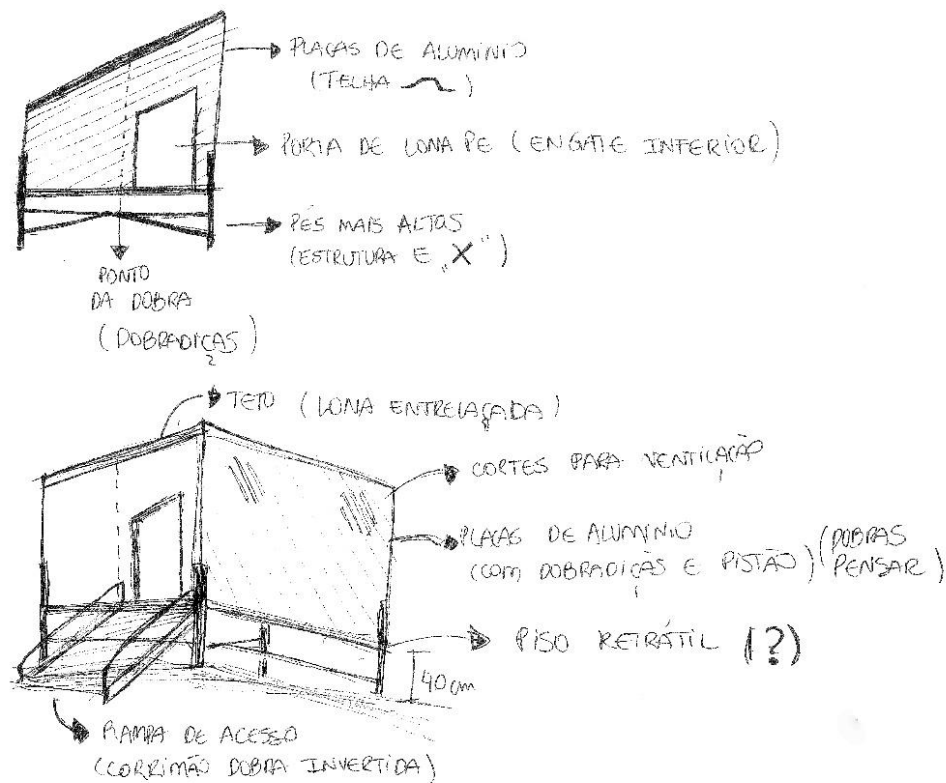 PLACAS DE ALUMÍNIO
(TELHA )
PORTA DE LONA PE (ENGATE INTERIOR)
PÉS MAIS ALTOS
(ESTRUTURA E "X")
PONTO
DA DOBRA
(DOBRADIÇAS)
TETO (LONA ENTRELAÇADA)
CORTES PARA VENTILAÇÃO
PLACAS DE ALUMINIO
(COM DOBRADIÇAS E PISTÃO)
(DOBRAS
PENSAR)
PISO RETRÁTIL (?)
40 cm
RAMPA DE ACESSO
(CORRIMÃO DOBRA INVERTIDA)